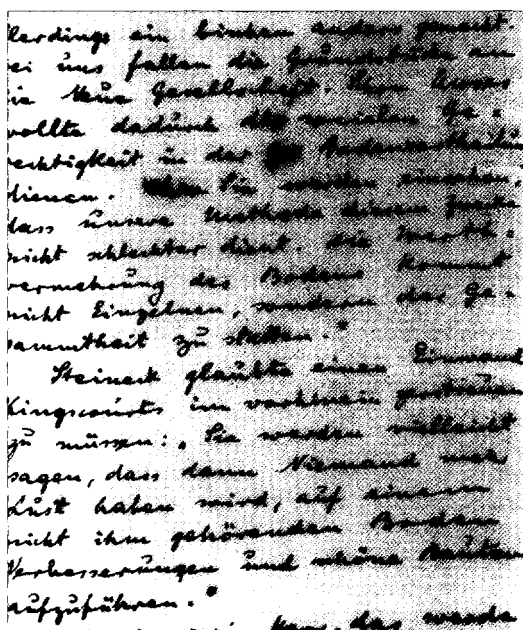 llerdings ein bischen anders gemacht.
ei uns fallen die Grundstücke an
ie Neue Gesellschaft. Herr
wollte dadurch der sozialen Ge-
rechtigkeit in der Bodenvertheilung
dienen. Sie werden einsehen,
dass unsere Methode diesem Zwecke
nicht schlechter dient. Die Werth-
vermehrung des Bodens kommt
nicht Einzelnen, sondern der Ge-
sammtheit zu statten."
Steineck glaubte einen Einwand
Kingscourts im vorhinein zerstreuen
zu müssen: „Sie werden vielleicht
sagen, dass dann Niemand mehr
Lust haben wird, auf einem
nicht ihm gehörenden Boden
Verbesserungen und schöne Bauten
aufzuführen."
das werde